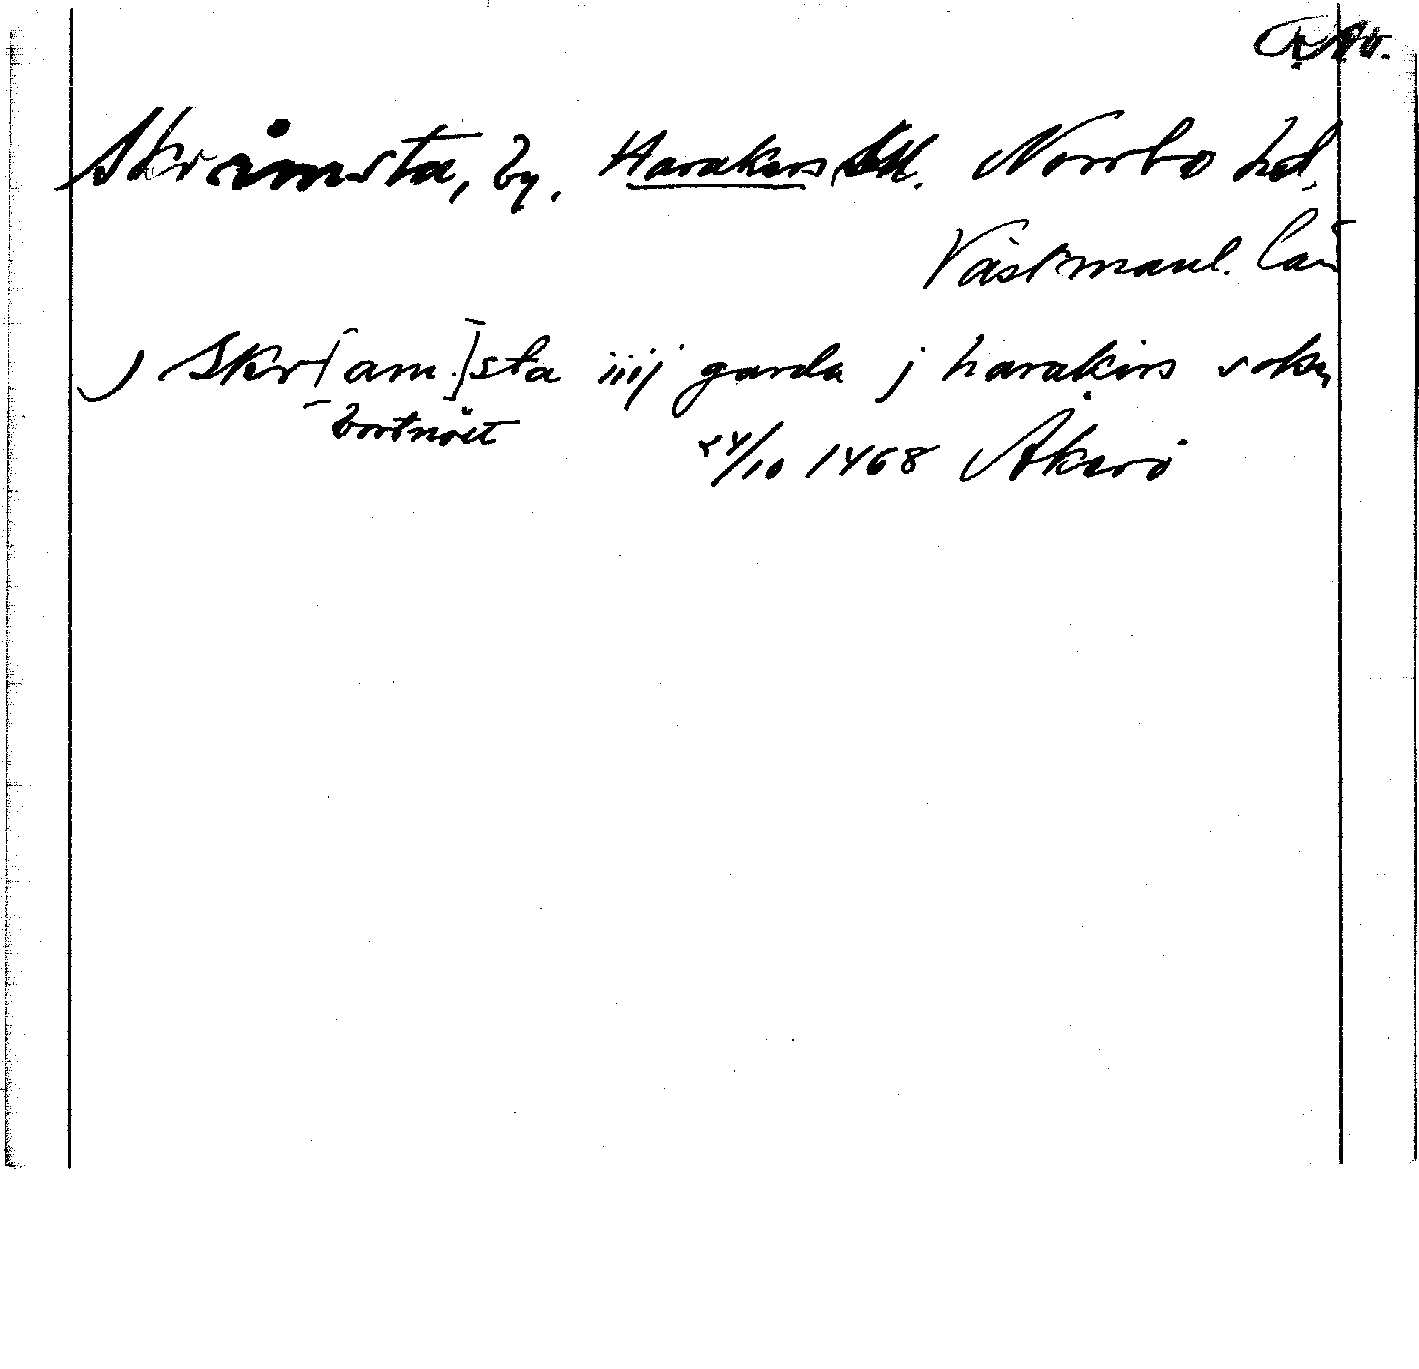 Skrimsta, by. Harakers sn. Norrbo hd.
Västmanl. län
j Skr[am.]sta iiij garda j harakirs sokn
bortnött 24/10 1468 Åkerö